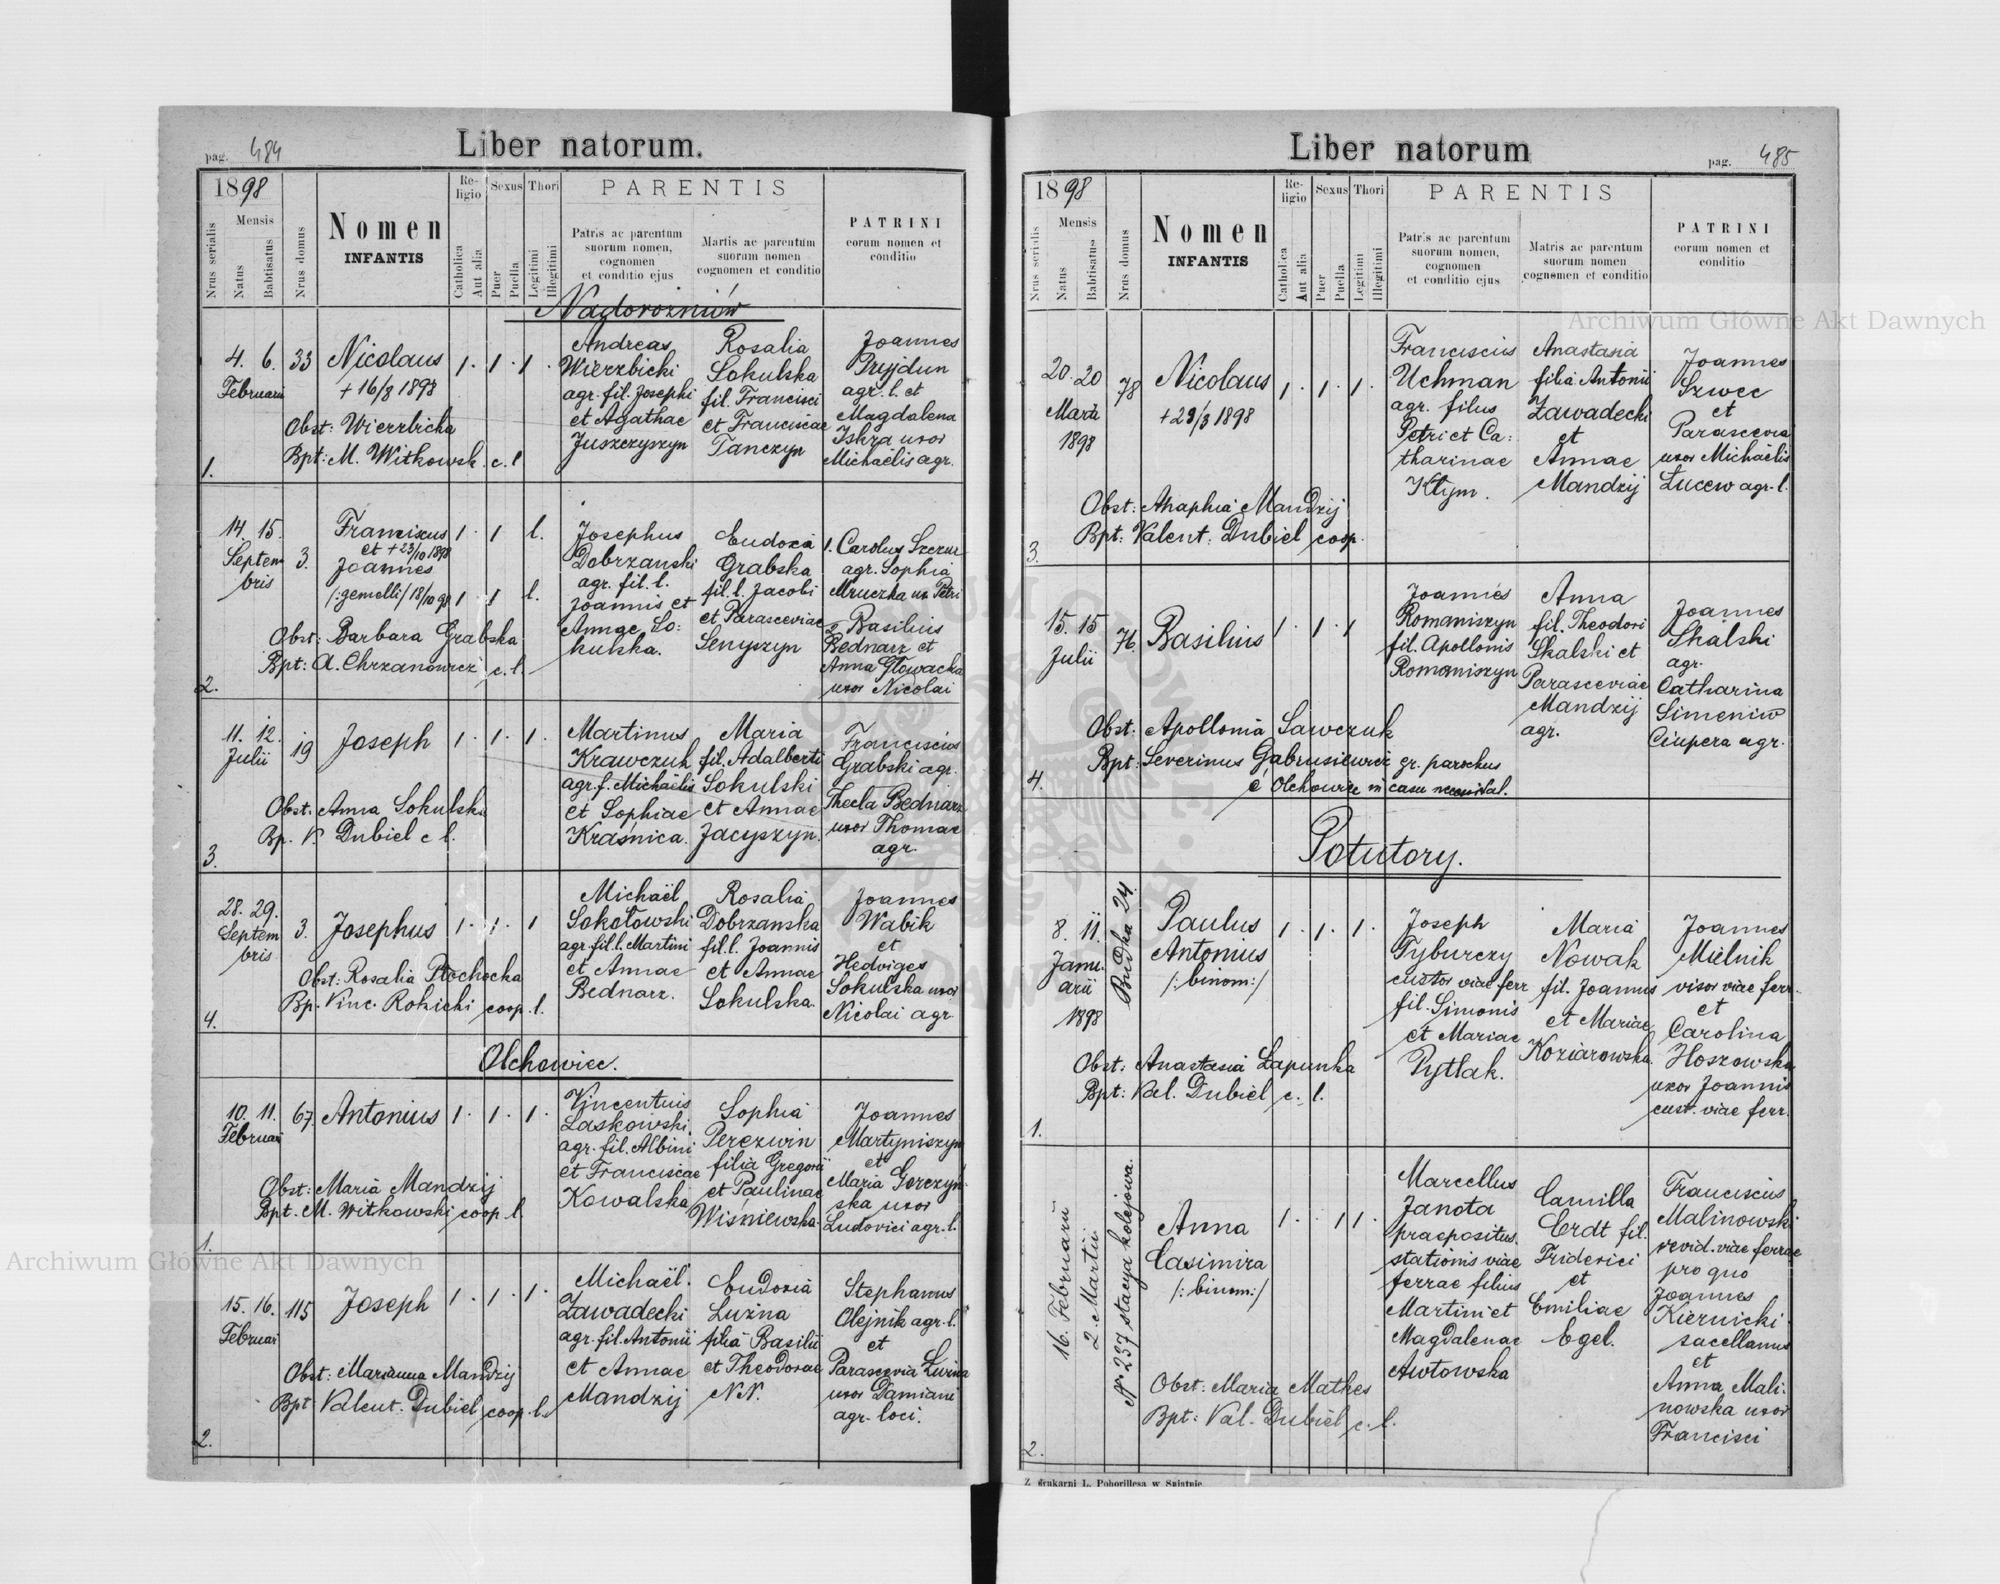 pag. 484
Liber natorum.
1898
Nrus serialis
Mensis
Natus
Babtisatus
Nrus domus
Nomen
INFANTIS
Re-
ligio
Catholica
Aut alia
Sexus
Puer
Puella
Thori
Legitimi
Illegitimi
PARENTIS
Patris ac parentum
suorum nomen,
cognomen
et conditio ejus
Martis ac parentum
suorum nomen
cognomen et conditio
PATRINI
eorum nomen et
conditio
Nadorożniów
1.
4. 6.
Februarii
33
Nicolaus
+ 16/8 1898
1. 1. 1.
Obst: Wierzbicka
Bpt: M. Witkowsk. c. l
Andreas
Wierzbicki
agr. fil. Josephi
et Agathae
Juszczyszyn
Rosalia
Sokulska
fil. Francisci
et Franciscae
Tanczyn
Joannes
Pryjdun
agr. l. et
Magdalena
Iskra uxor
Michaëlis agr.
2.
14. 15.
Septem
bris
3.
Franciscus
et + 23/10 1898
Joannes
/:gemelli/ 18/10 98
1. 1 l.
1. 1 l.
Obst: Barbara Grabska
Bpt: A. Chrzanowicz c. l.
Josephus
Dobrzanski
agr. fil. l.
Joannis et
Annae So:
kulska.
Eudoxa
Grabska
fil. l. Jacobi
et Parasceviae
Senyszyn
1. Carolus Szczur
agr. Sophia
Mruczka ux Petri
2 Basilius
Bednarz et
Anna Głowacka
uxor Nicolai
3.
11. 12.
Julii
19
Joseph
1. 1. 1.
Obst. Anna Sokulska
Bp. V. Dubiel c l.
Martinus
Krawczuk
agr. f. Michaëlis
et Sophiae
Kraśnica.
Maria
fil. Adalberti
Sokulski
et Annae
Jacyszyn.
Franciscus
Grabski agr.
Thecla Bednarz
uxor Thomae
agr.
4.
28. 29.
Septem
bris
3.
Josephus
1. 1. 1
Obst: Rosalia Płochocka
Bp. Vinc. Rokicki coop. l.
Michaël
Sokołowski
agr. fil. l. Martini
et Annae
Bednarz.
Rosalia
Dobrzanska
fil. l. Joannis
et Annae
Sokulska.
Joannes
Wabik
et
Hedviges
Sokulska uxor
Nicolai agr
Olchowiec.
1.
10. 11.
Februari
67.
Antonius
1. 1. 1.
Obst: Maria Mandzij
Bpt. M. Witkowski coop. l.
Vincentius
Laskowski.
agr. fil. Albini
et Franciscae
Kowalska
Sophia
Perezwin
filia Gregorii
et Paulinae
Wiśniewska.
Joannes
Martyniszyn
et
Maria Gorczyń
ska uxor
Ludovici agr. l.
2.
15. 16.
Februari
115
Joseph
1. 1. 1.
Obst: Marianna Mandzij
Bpt Valent. Dubiel coop. l.
Michaël.
Zawadecki
agr. fil. Antonii
et Annae
Mandzij
Eudoxia
Luzna
filia Basilii
et Theodorae
N.N.
Stephanus
Olejnik agr. l.
et
Parascevia Luzina
uxor Damiani
agr. loci.
Liber natorum
pag. 485
1898
Nrus serialis
Mensis
Natus
Babtisatus
Nrus domus
Nomen
INFANTIS
Re-
ligio
Catholica
Aut alia
Sexus
Puer
Puella
Thori
Legitimi
Illegitimi
PARENTIS
Patris ac parentum
suorum nomen,
cognomen
et conditio ejus
Matris ac parentum
suorum nomen
cognomen et conditio
PATRINI
eorum nomen et
conditio
3
20. 20
Martii
1898
78
Nicolaus
+ 29/3 1898
1. 1. 1.
Obst: Ahaphia Mandzij
Bpt: Valent. Dubiel coop.
Franciscus
Uchman
agr. filius
Petri et Ca:
tharinae
Klym.
Anastasia
filia Antonii
Zawadecki
et
Annae
Mandzij
Joannes
Szwec
et
Parascevia
uxor Michaëlis
Łucew agr. l.
4.
15. 15
Julii
76
Basilius
1. 1. 1
Obst: Apollonia Sawczuk
Bpt: Severinus Gabrusiewicz gr. parochus
é Olchowiec in casu necessitat.
Joannes
Romaniszyn
fil. Apollonis
Romaniszyn
Anna
fil. Theodori
Skalski et
Parasceviae
Mandzij
agr.
Joannes
Skalski
agr.
Catharina
Simeniw
Ciupera agr.
Potutory.
1.
8. 11.
Janu.
arii
1898
Budka 24.
Paulus
Antonius
/:binom:/
1. 1. 1.
Obst: Anastasia Łapunka
Bpt: Val. Dubiel c. l.
Joseph
Tyburczy
custor viae ferr
fil. Simonis
et Mariae
Pytlak.
Maria
Nowak
fil. Joannis
et Mariae
Koziarowska.
Joannes
Mielnik
visor viae ferr.
et
Carolina
Hoszowska
uxor Joannis
cust. viae ferr.
2.
16. Februarii
2. Martii
Nr 237 stacya kolejowa.
Anna
Casimira
/:binom:/
1. 1 1.
Obst: Maria Mathes
Bpt: Val. Dubiel c. l.
Marcellus
Janota
praepositus.
stationis viae
ferrae filius
Martini et
Magdalenae
Awtowska
Camilla
Erdt fil.
Friderici
et
Emiliae
Egel.
Franciscus
Malinowski
revid. viae ferrae
pro quo
Joannes
Kiernicki
sacellanus
et
Anna Mali-
nowska uxor
Francisci
Z drukarni L. Pohorillesa w Śniatnie
Archiwum Główne Akt Dawnych
Archiwum Główne Akt Dawnych